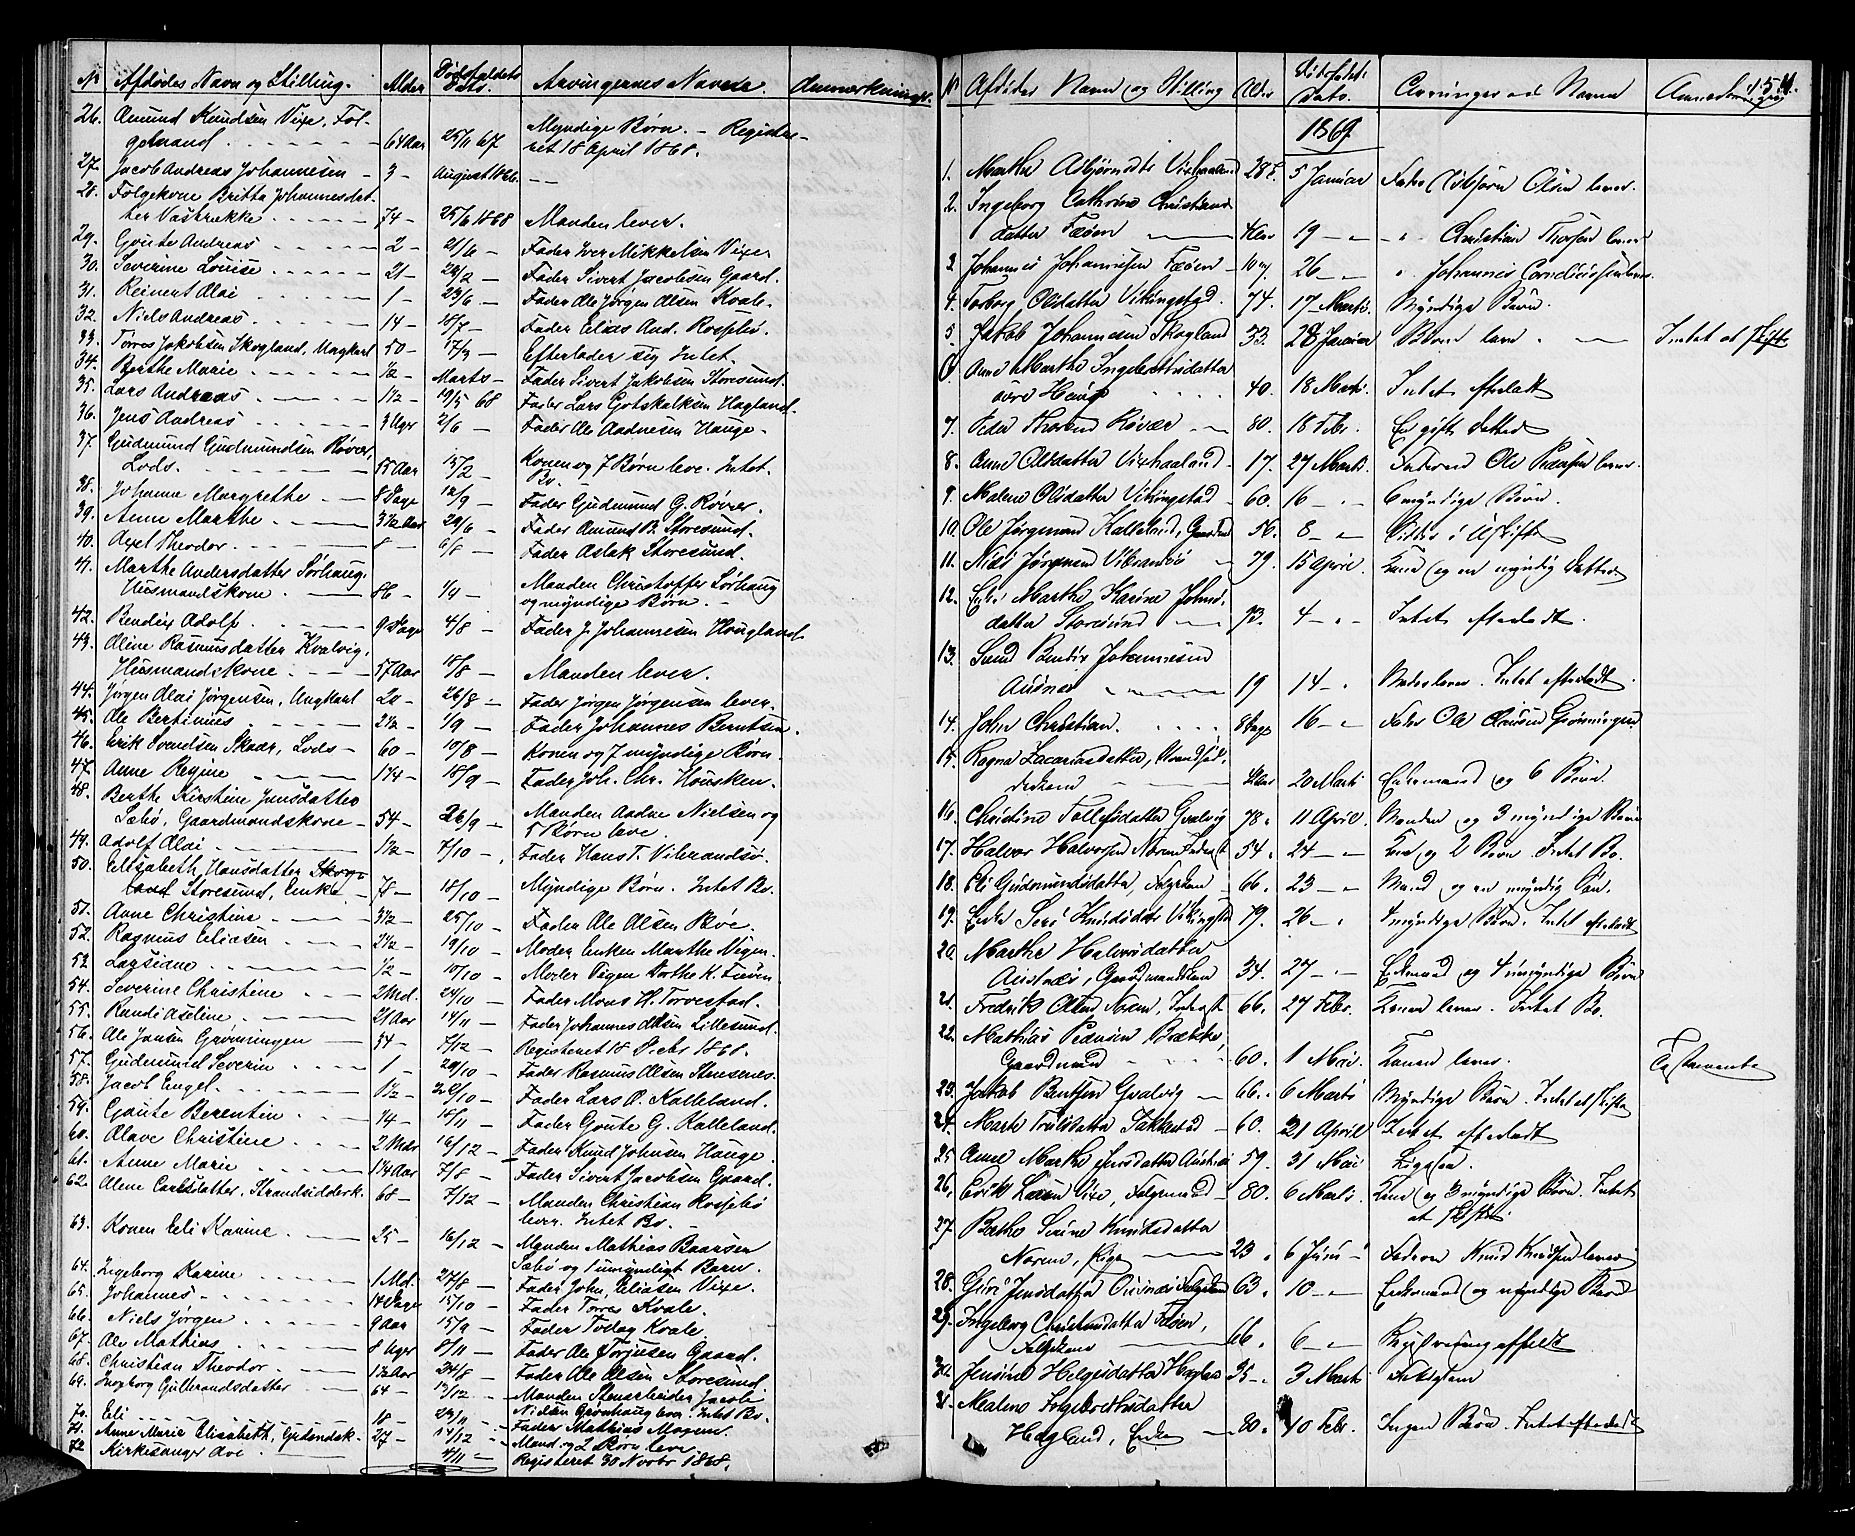 Nr Afdødes Navn og Stilling. Alder Dødsfaldets Dato. Arvingernes Navne Anmærkninger.
26. Amund Knudsen Vixe, Fol-
gemand 64 Aar 25/11 67 Myndige Børn. – Registre-
ret 18 April 1868.
27. Jacob Andreas Johannesen 3 – August 1866. – –
28. Folgekone Britta Johannesdat-
ter Vasbrekke 74 – 25/6 1868 Manden lever.
29. Goute Andreas 2 – 21/6 – Fader Iver Mikkelsen Vixe
30. Severine Louise 21 – 29/2 – Fader Sivert Jacobsen Gaard.
31. Reinert Olai 1 – 23/6 – Fader Ole Jørgen Olsen Kvale.
32. Niels Andreas 14 – 18/7 – Fader Elias And. Rossebø.
33. Torres Jakobsen Skogland, Ungkarl 50 – 17/3 – Efterlader sig Intet.
34. Berthe Marie ½ – Marts – Fader Sivert Jakobsen Storesund.
35. Lars Andreas 1½ – 19/5 68 Fader Lars Gotskalksen Hagland.
36. Jens Andreas 3 Uger 2/6 – Fader Ole Aadnesen Hauge.
37. Gudmund Gudmundsen Røver,
Lods. 55 Aar 15/2 – Konen og 7 Børn leve. Intet
Bo.
38. Johanne Margrethe 8 Dage 12/9 – Fader Gudmund G. Røver.
39. Anne Marthe 3½ Aar 29/6 – Fader Amund B. Storesund.
40. Axel Theodor 8 – 6/8 – Fader Aslak Storesund.
41. Marthe Andersdatter Sørhaug,
Husmandskone 86 – 1/4 – Manden Christoffer Sørhaug
og myndige Børn. –
42. Bendix Adolf 9 Dage 4/8 – Fader J. Johannesen Hougland.
43. Oline Rasmusdatter Kvalvig,
Husmandskone 57 Aar 18/8 – Manden lever.
44. Jørgen Olai Jørgensen, Ungkarl 20 – 26/8 – Fader Jørgen Jørgensen lever.
45. Ole Bertinius 2½ – 1/9 – Fader Johannes Berntsen.
46. Erik Svendsen Skaar, Lods – 60 – 10/8 – Konen og 7 myndige Børn.
47. Anne Regine 1¼ – 18/9 – Fader Joh. Chr. Housken.
48. Berthe Kirstine Jensdatter
Sæbø, Gaardmandskone – 54 – 26/9 – Manden Aadne Nielsen og
5 Børn leve.
49. Adolf Olai 1½ – 7/10 – Fader Hans T. Vibrandsø.
50. Elisabeth Hansdatter Skog-
land Storesund, Enke 78 – 18/10 – Myndige Børn. Intet Bo.
51. Anne Christine 3½ – 25/10 – Fader Ole Olsen Bøe.
52. Rasmus Eliasen 2½ – 19/10 – Moder Enken Marthe
53. Larsine ½ – 10/10 – Moder Pigen Dorthe K.
54. Severine Christine 2 Md. 24/10 – Fader Mons H. Torvestad.
55. Randi Oseline 21 Aar 14/11 – Fader Johannes Olsen Lillesund.
56. Ole Jansen Grønningen 34 – 7/12 – Registeret 18 Decbr 1868.
57. Gudmund Severin 1 – 20/10 – Fader Rasmus Olsen Stensenes.
58. Jacob Engel. 1½ – 26/10 – Fader Lars O. Kalleland.
59. Goute Berentin 14 – 15/11 – Fader Goute G. Kalleland.
60. Olave Christine 2 Mdr 16/12 – Fader Knud Johnsen Hauge.
61. Anne Marie 1¼ Aar 7/8 – Fader Sivert Jacobsen Gaard.
62. Alene Carlsdatter, Strandsidderk. 68 – 7/12 – Manden Christian Rossebø
lever. Intet Bo. –
63. Konen Eli Karine 25 – 16/12 – Manden Mathias Baarsen
Sæbø og 1 umyndigt Barn.
64. Ingeborg Karine 1 Md. 27/8 – Fader John Eliasen Vixe.
65. Johannes 14 Dage 15/10 – Fader Torres Kvale.
66. Niels Jørgen 9 Aar 15/9 – Fader Tollag Kvale.
67. Ole Mathias 8 Uger 8/11 – Fader Ole Torjusen Gaard.
68. Christian Theodor 1½ Aar 24/8 – Fader Ole Olsen Storesund.
69. Ingborg Gulbrandsdatter 64 – 13/12 – Manden Stenarbeider Jacob
Nielsen Grønhaug lever. Intet Bo.
70. Eli 18 – 23/11 – Fader Mathias
71. Anne Marie Elisabeth, 27 – 14/12 – Mand og 2 Børn leve
72 Kirkesanger Ave 4/11 – Registeret 30 Novbr 1868.
Nr Afdødes Navn og Stilling Alder Dødsfaldets Dato. Arvingernes Navne Anmærkning 154.
1869
1. Marthe Asbjørnsdtr Vixhaaland 28 5 Januar Fader Asbjørn Olsen lever.
2. Ingeborg Cathrine Christians
datter Feøen 19 – Christian Thorsen lever
3. Johannes Johannesen Feøen 26 – Johannes Corneliussen lever.
4. Torborg Olsdatter Vikingstad. 74. 17 Marts. Myndige Børn.
5. Jakob Johannesen Skogland 33. 28 Januar Børn leve. Intet at skifte
6. Anne Marthe Ingebretsdatter
øvre Hauge 40. 18 Marts. Intet efterladt
7. Peder Røvær 80. 18 Febr. En gift Datter
8. Anne Olsdatter Vixhaaland 17. 27 Marts. Faderen Ole Pedersen lever.
9. Malene Olsdatter Vikingstad 60. 16 – 6 myndige Børn.
10. Ole Jørgensen Kalleland, 56. 8 – Sidder i Uskifte
11. Nils Jørgensen Vibrandsø 79. 15 April. Kone og en myndig Datter
12. Enke Marthe Karine Johns-
datter Storesund 73. 4 – Intet efterladt.
13. Svend Bendix Johannesen
Ausnes 19 14 – Moder lever. Intet efterladt.
14. John Christian. 8 Dage 16 – Fader Ole Grønningen
15. Ragna Zacariasdatter, Strandsid-
derkone 20 Marts Enkemand og 6 Børn.
16. Christine Gvalvig 78. 11 April. Manden og 3 myndige Børn
17. Halvor Halvorsen Noren 54. 24 – Kone og 2 Børn Intet Bo.
18. Eli Gudmundsdatter, Folgekone 66. 23 – Mand og en myndig Søn.
19. Enke Siri Knudsdatter Vikingstad 79. 26 – 4 myndige Børn. Intet efterladt
20. Marthe Halvorsdatter
Austnes, Gaardmandskone 34. 27 – Enkemand og 4 umyndige Børn
21. Fredrik Olsen Noren, 66. 27 Febr. Konen lever. Intet Bo.
22. Mathias Pedersen Bække,
Gaardmand 60. 1 Mai. Konen lever. Testamente
23. Jakob Bentsen Gvalvig 66. 6 Marts Myndige Børn. Intet at skifte
24. Marte 60. 21 April Intet efterladt
25 Anne Marthe Jensdatter Austnes 59. 31 Mai
26. Erik Larsen Vixe, Folgemand 80. 6 Marts. Kone og 3 myndige Børn. Intet
at skifte.
27. Berthe Serine Knudsdatter
Norene, Pige 23. 6 Juni Faderen Knud Knudsen lever
28. Guri Jensdatter Ausnes Folgekone 63. 10 – Enkemand og myndige Børn
29. Ingeborg Christensdatter Feøen,
Folgekone 66. 6 – Registrering afholdt
30. Jensine Helgesdatter 35 – 3 Marts
31. Malene Ingebretsdatter
Hagland, Enke 80. 10 Febr. Ingen Børn. Intet efterladt